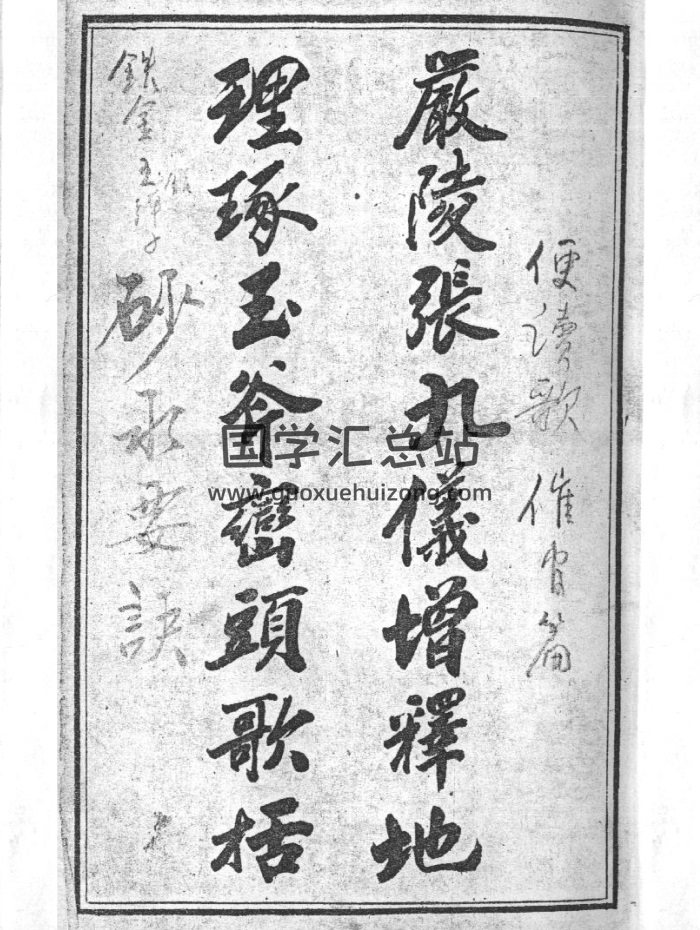 便讀歌 催官篇
嚴陵張九儀增釋地
理琢玉斧巒頭歌括
砂水要訣
鉄金玉
国学汇总站
www.guoxuehuizong.com